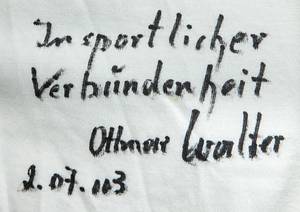 In sportlicher
Verbundenheit
Ottmar Walter
2.07.03